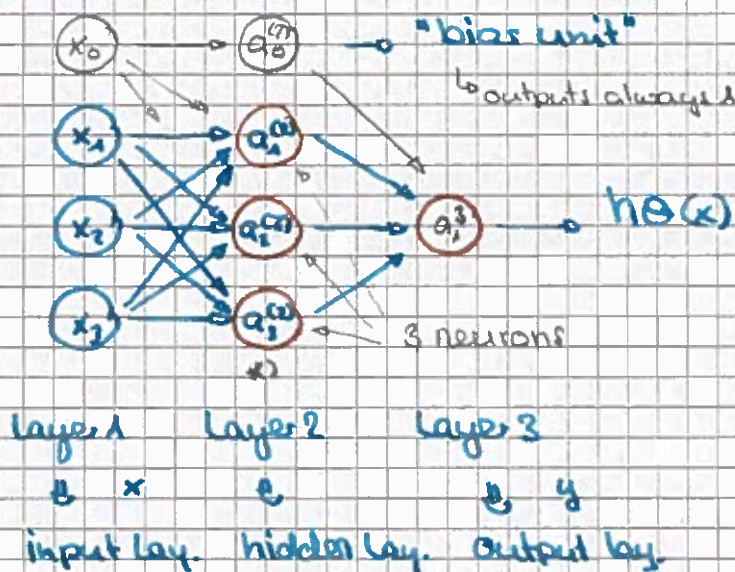 x₀ a₀⁽²⁾ "bias unit"
↳ outputs always 1
x₁ a₁⁽²⁾
x₂ a₂⁽²⁾ a₁³ hΘ(x)
x₃ a₃⁽²⁾
3 neurons
*)
Layer 1 Layer 2 Layer 3
x y
input lay. hidden lay. output lay.